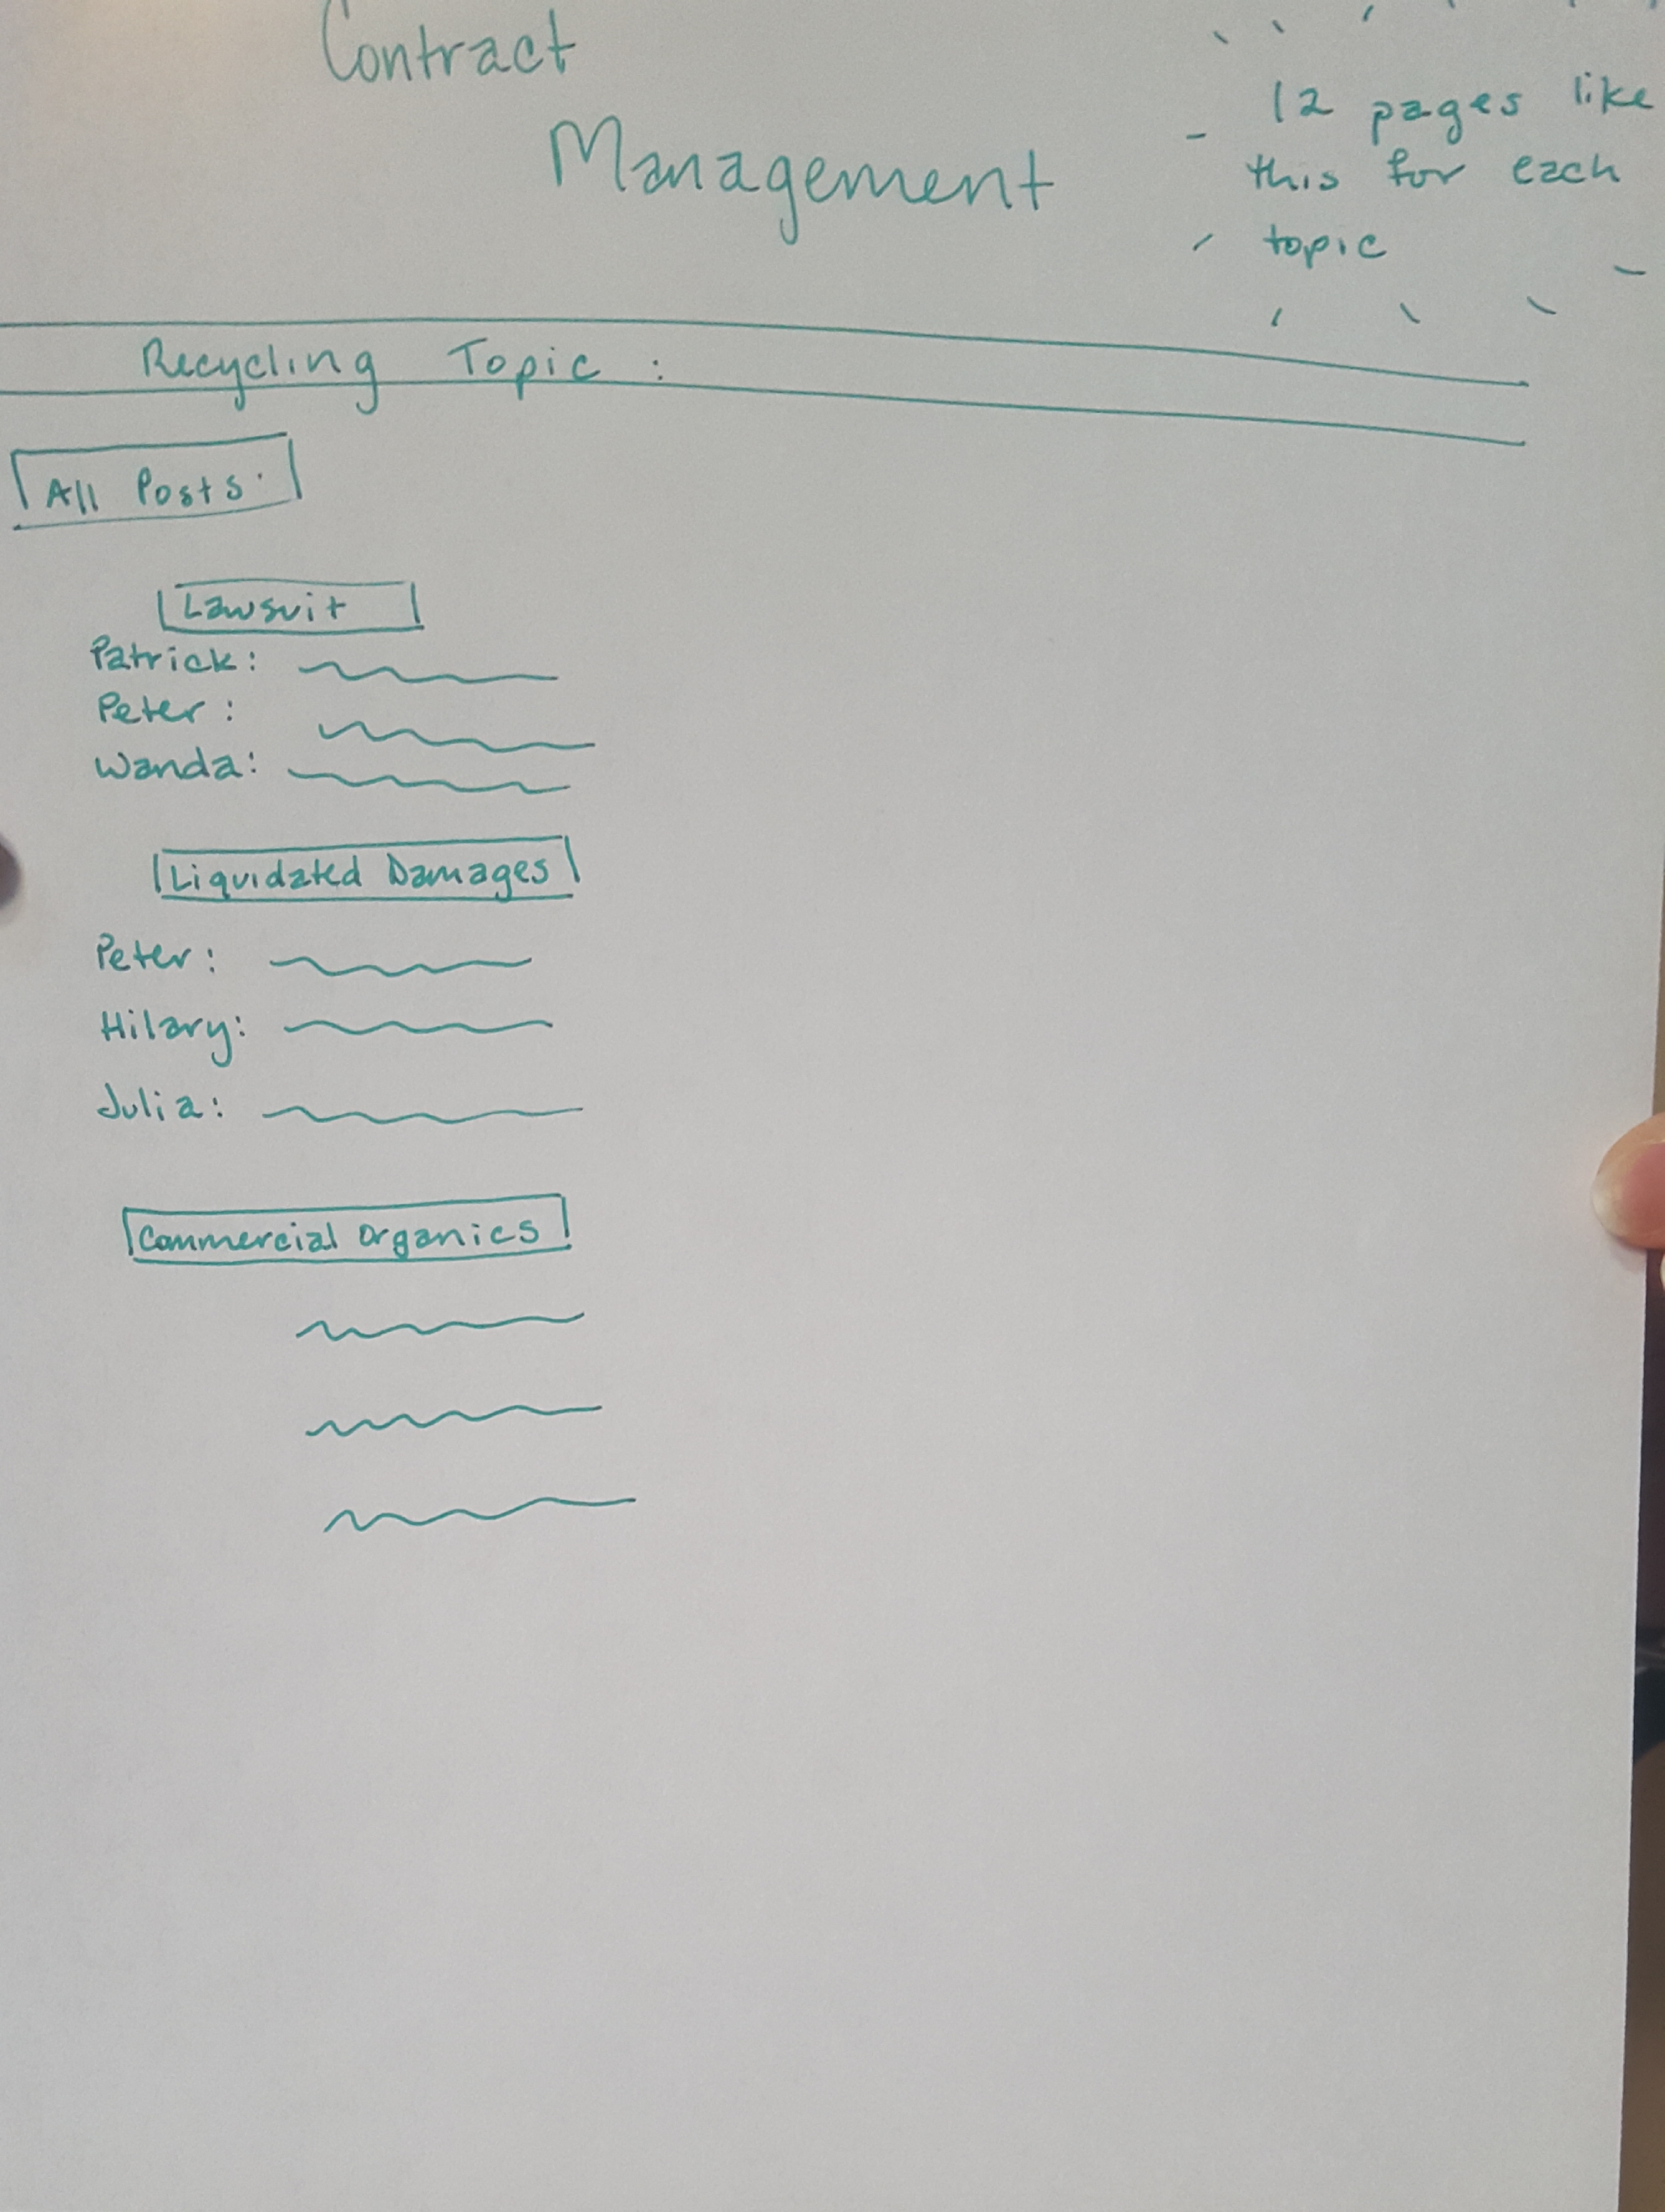 Contract
Management
12 pages like
this for each
topic
Recycling Topic :
All Posts
Lawsuit
Patrick:
Peter:
Wanda:
Liquidated Damages
Peter:
Hilary:
Julia:
Commercial Organics